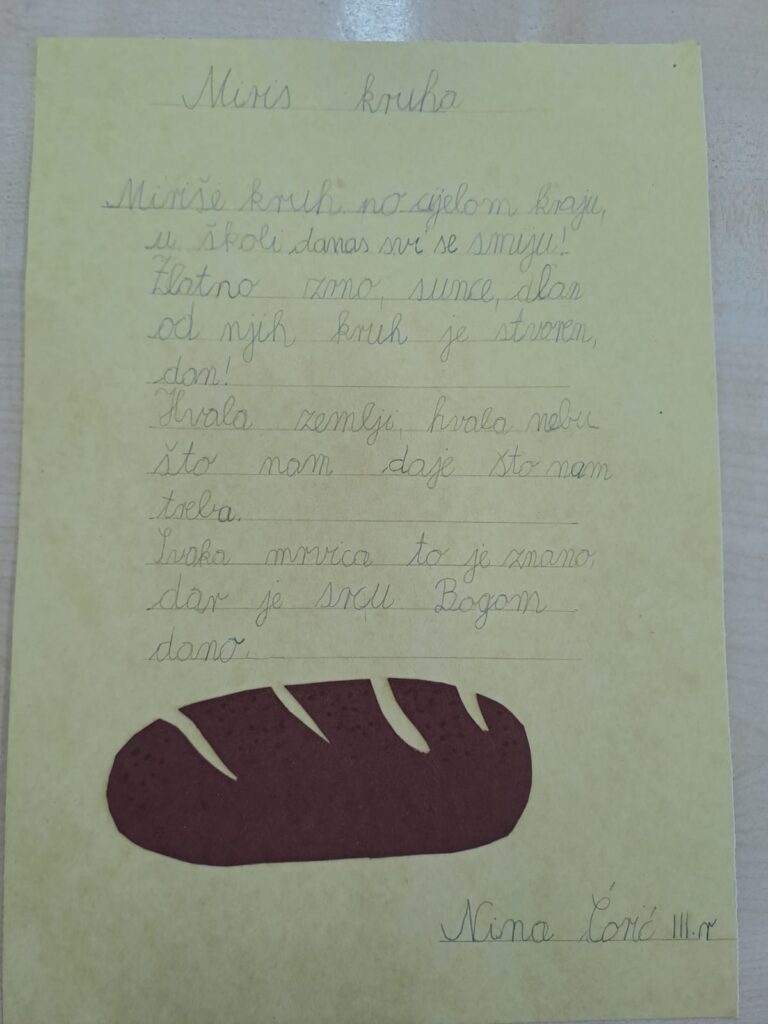 Miris kruha
Miriše kruh no cijelom kraju,
u školi danas svi se smiju!
Zlatno zrno, sunce, dlan
od njih kruh je stvoren,
dan!
Hvala zemlji, hvala nebu
što nam daje što nam
treba.
Svaka mrvica to je znano,
dar je srcu Bogom
dano.
Nina Ćorić III.r